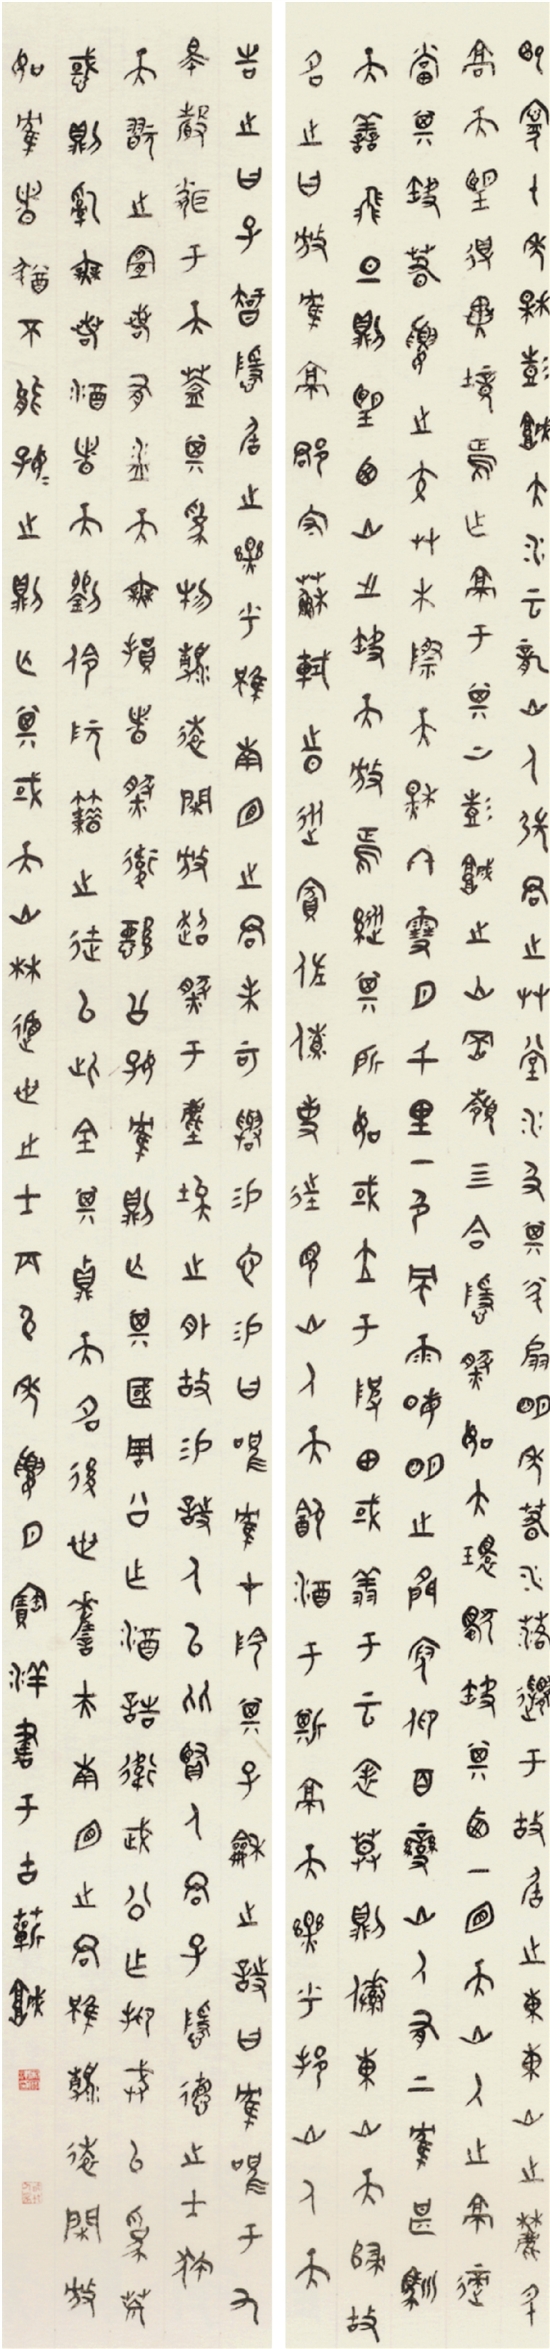 熙寧十年秋彭城大水云龍山人張君之艸堂水及其半扉明年春水落遷于故居之東東山之麓升
高而望得異境焉作亭于其上彭城之山岡嶺四合隱然如大環獨缺其西一面而山人之亭適
當其缺春夏之交艸木際天秋冬雪月千里一色風雨晦明之間俯仰百變山人有二鶴甚馴
而善飛旦則望西山之缺而放焉縱其所如或立于陂田或翔于云表莫則傃東山而歸故
名之曰放鶴亭郡守蘇軾時從賓佐僚吏往見山人而飲酒于斯亭而樂乎挹山人而
告之曰子知隱居之樂乎雖南面之君未可與易也易曰鳴鶴在陰其子和之詩曰鶴鳴于九
皋聲聞于天蓋其為物清遠閒放超然于塵埃之外故易詩人以比賢人君子隱德之士狎
而玩之宜若有益而無損者然衛懿公好鶴則亡其國周公作酒誥衛武公作抑戒以為荒
惑敗亂無若酒者而劉伶阮籍之徒以此全其真而名後世嗟夫南面之君雖清遠閒放
如鶴者猶不能好好之則亡其或而山林遁世之士丙申秋夏月寶洋書于古蘄城